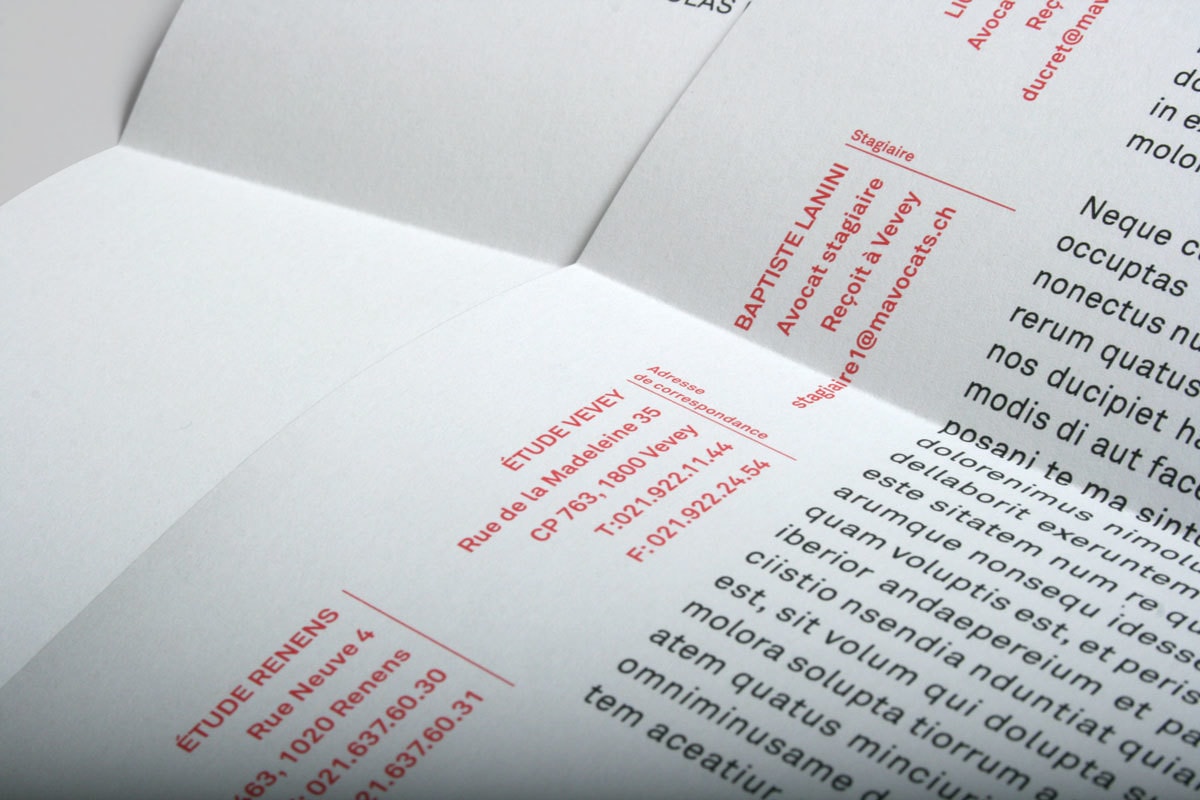 OLAS
Avoca
Reç
ducret@mav
Stagiaire
BAPTISTE LANINI
Avocat stagiaire
Reçoit à Vevey
stagiaire1@mavocats.ch
Adresse
de correspondance
ÉTUDE VEVEY
Rue de la Madeleine 35
CP 763, 1800 Vevey
T:021.922.11.44
F: 021.922.24.54
ÉTUDE RENENS
Rue Neuve 4
463, 1020 Renens
021.637.60.30
21.637.60.31
do
in e
molo
Neque c
occuptas
nonectus nu
rerum quatus
nos ducipiet h
modis di aut face
posani te ma sint
dolorenimus nimolu
dellaborit exeruntem
este sitatem num re qu
arumque nonsequ idess
quam voluptis est, et peris
iberior andaepereium et pa
ciistio nsendia nduntiat quia
est, sit volum qui dolupta s
molora solupta tiorrum a
atem quatus minciuri
omniminusame d
tem aceatiur